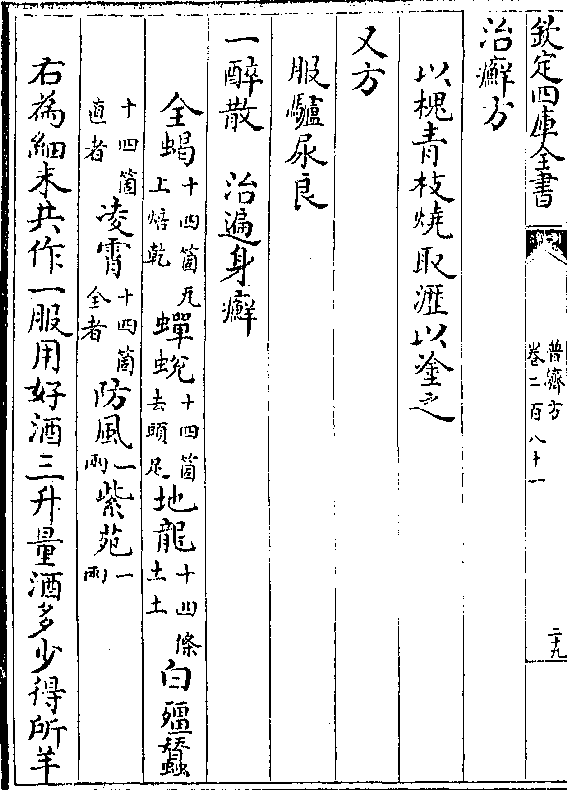 欽定四庫全書
普濟方
卷二百八十一
二十九
治癬方
以槐青枝燒取瀝以塗之
又方
服驢尿良
一醉散　治遍身癬
全蝎十四箇瓦上焙乾蟬蛻十四箇去頭足地龍十四條去土白殭蠶
十四箇直者凌霄十四箇全者防風一兩紫菀一兩
右為細末共作一服用好酒三升量酒多少得所羊